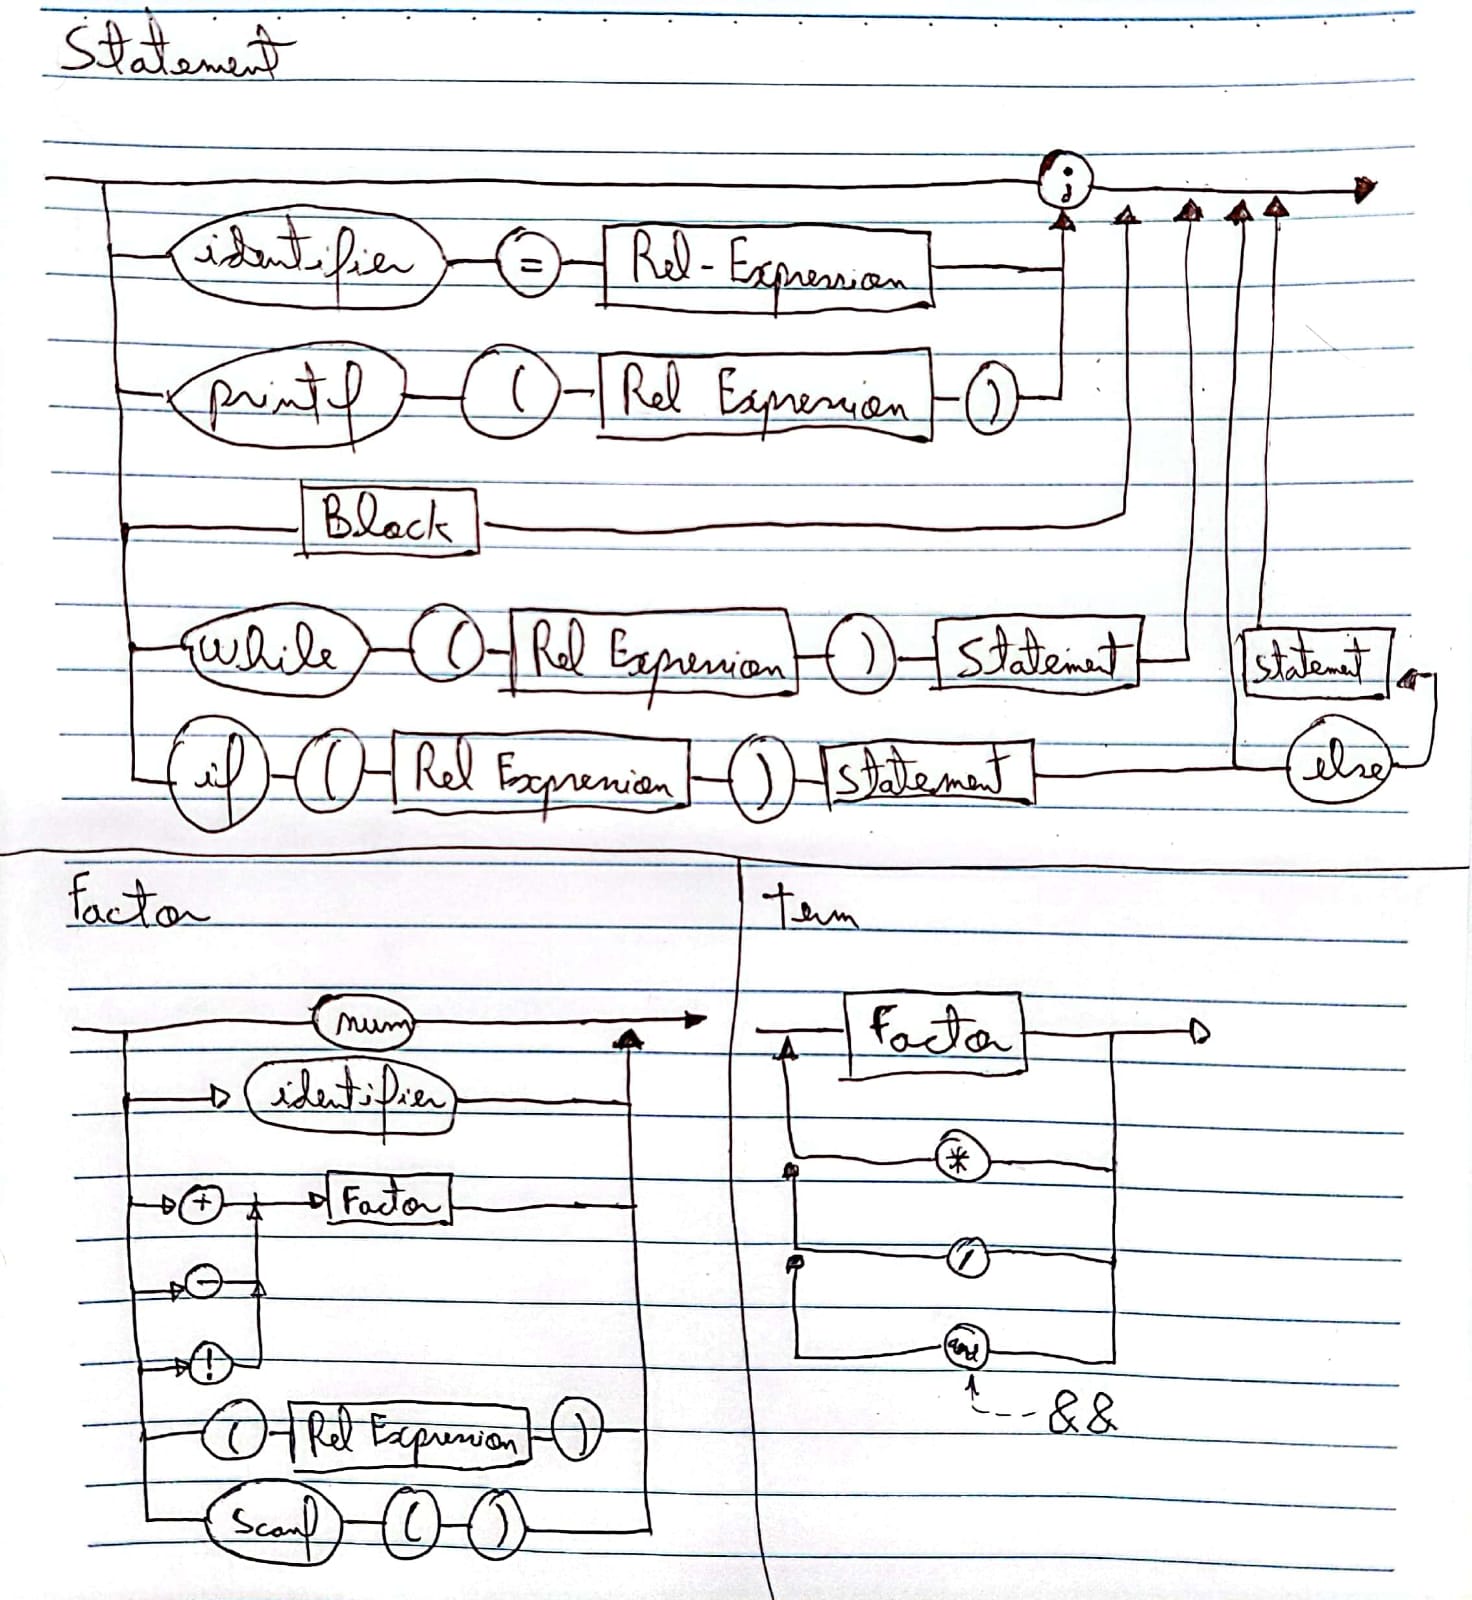 Statement
;
identifier = Rel-Expression
printf ( Rel Expression )
Block
while ( Rel Expression ) Statement
statement
if ( Rel Expression ) statement else
Factor
num
identifier
+ Factor
-
!
( Rel Expression )
scanf ( )
Term
Factor
*
/
and
&&